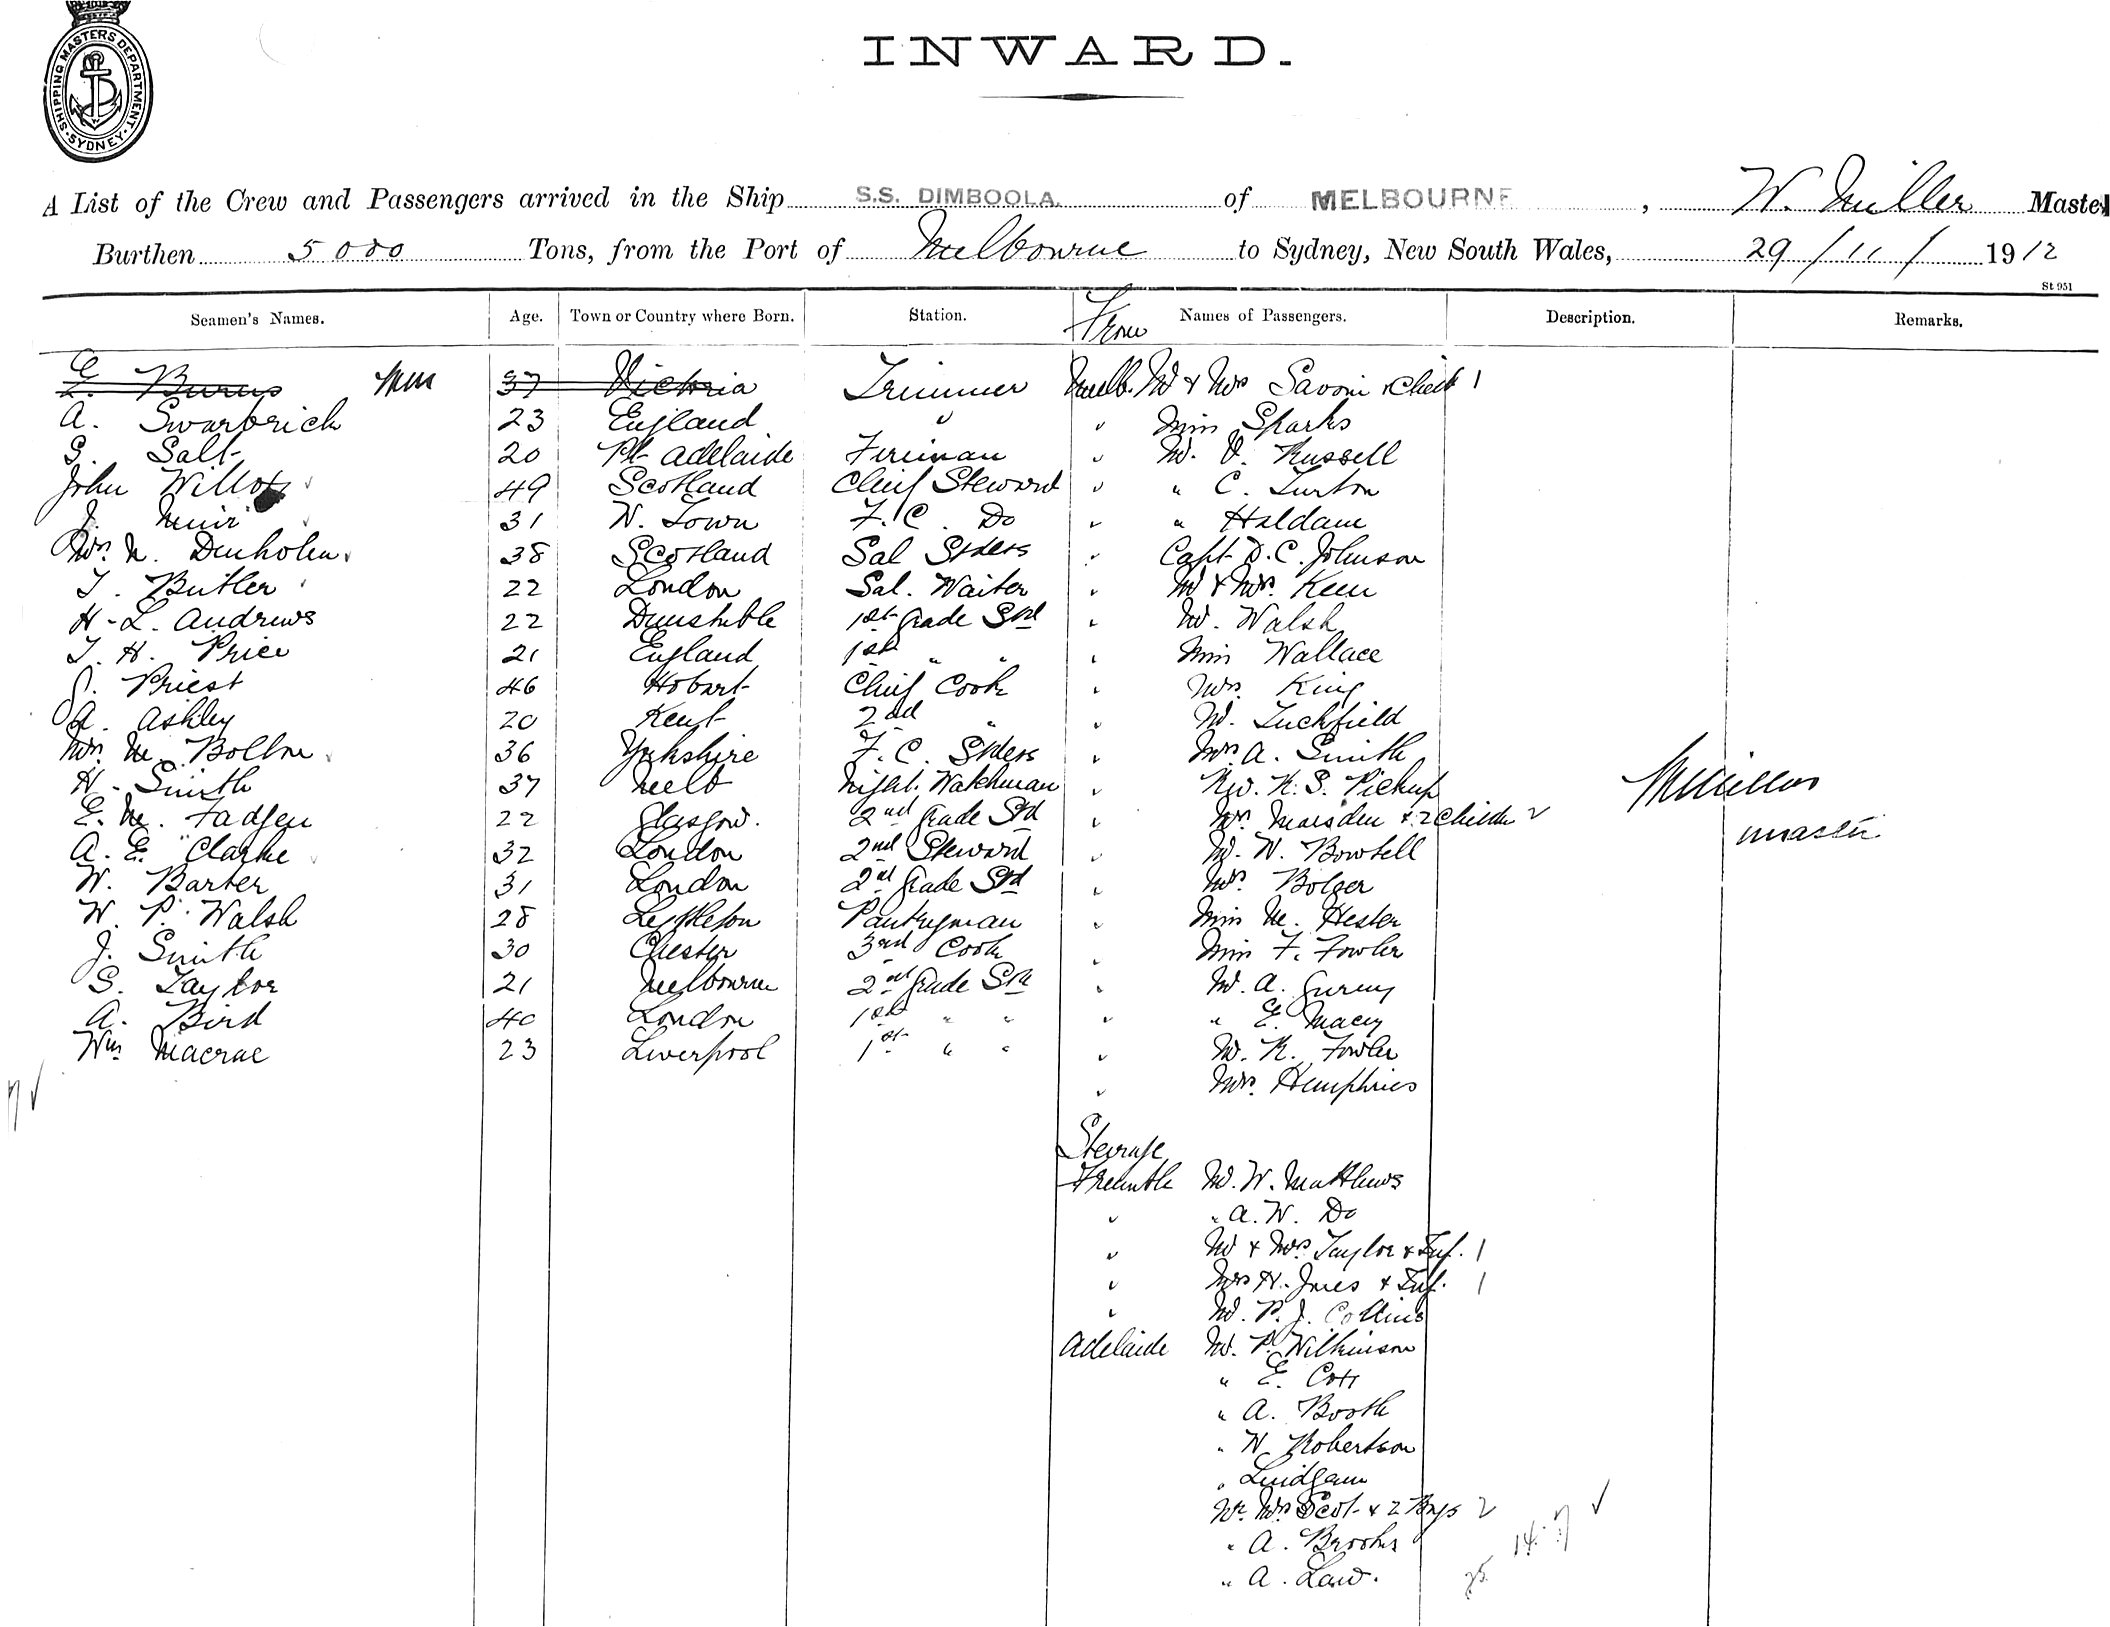 SHIPPING MASTERS DEPARTMENT. SYDNEY.
INWARD.
A List of the Crew and Passengers arrived in the Ship S.S. DIMBOOLA. of MELBOURNE, W. Miller Master
Burthen 5000 Tons, from the Port of Melbourne to Sydney, New South Wales, 29/11/1912
St 951
Seamen's Names. Age. Town or Country where Born. Station. From Names of Passengers. Description. Remarks.
Burns 37 Victoria Trimmer Melb. Mr & Mrs Savoni & Child 1
A. Swarbrick 23 England " " Miss Sparks
S. Salt 20 Pt Adelaide Fireman " Mr. V. Russell
John Willox 49 Scotland Chief Steward " " C. Turton
J. Muir 31 W. Town F. C. Do " " Haldane
Mrs. N. Denholm 38 Scotland Sal Stdess " Capt. D. C. Johnson
T. Butler 22 London Sal. Waiter " Mr & Mrs. Keen
H. L. Andrews 22 Dunstable 1st Grade Std " Mr. Walsh
T. H. Price 21 England 1st " " " Miss Wallace
J. Priest 46 Hobart Chief Cook " Mrs. King
A. Ashley 20 Kent 2nd " " Mr. Tuckfield
Mrs. M. Bolton 36 Yorkshire F. C. Stdess " Mrs. A. Smith
H. Smith 37 Melb Night. Watchman " Rev. R. S. Pickup
E. M. Fadgen 22 Glasgow. 2nd Grade Std " Mrs. Marsden & 2 Childn 2
master
A. E. Clarke 32 London 2nd Steward " Mr. W. Bowtell
W. Barber 31 London 2nd Grade Std " Mrs. Bolger
W. P. Walsh 28 Pantryman " Miss M. Hester
J. Smith 30 Chester 3rd Cook " Miss F. Fowler
S. Taylor 21 Melbourne 2nd Grade Std " Mr. A. Gurney
A. Bird 40 London 1st " " " " E. Macey
Wm Macrae 23 Liverpool 1st " " " Mr. R. Fowler
" Mrs. Humphries
Steerage
Fremtle Mr. W. Matthews
" " A. W. Do
" Mr & Mrs. Taylor & Inf. 1
" Mrs H. Jones & Inf. 1
" Mr. P. J. Collins
Adelaide Mr. P. Wilkinson
" E. Cox
" A. Booth
" W. Robertson
" Lindgam
Mr. Mrs Scot & 2 Boys 2
" A. Brooks
" A. Law.